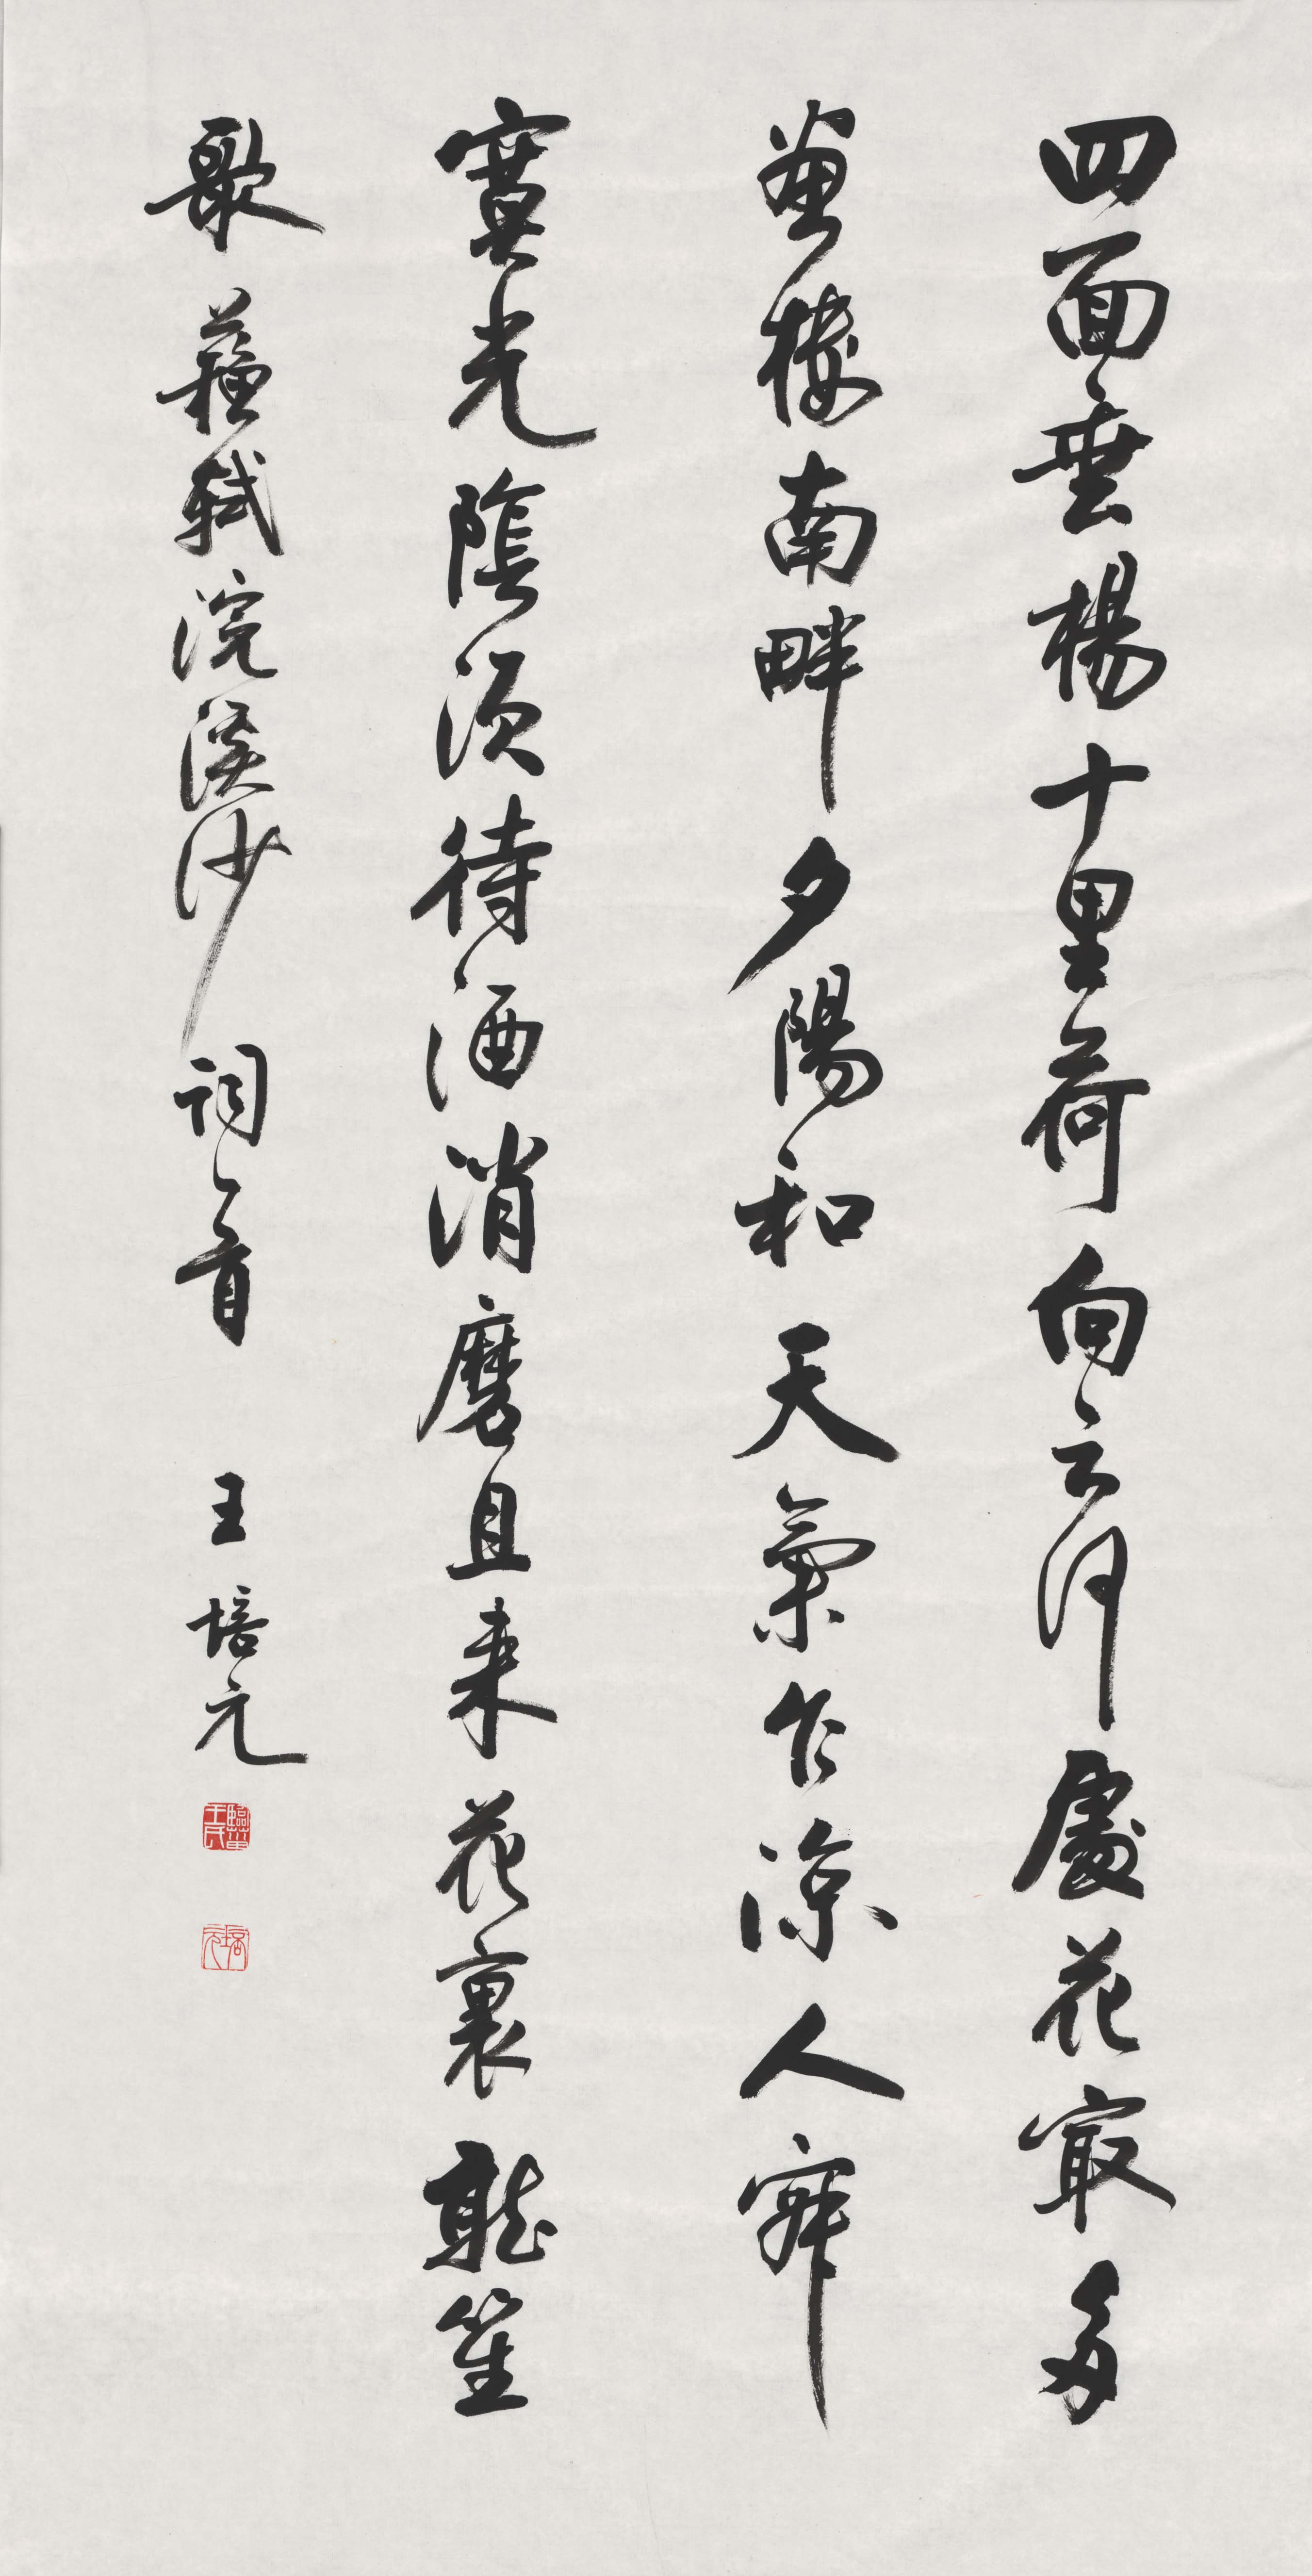 四面垂楊十里荷向云何處花最多
畫樓南畔夕陽和天氣乍涼人寂
寞光陰須待酒消磨且来花裏聽笙
歌 蘇軾浣溪沙詞一首 王培元
培元